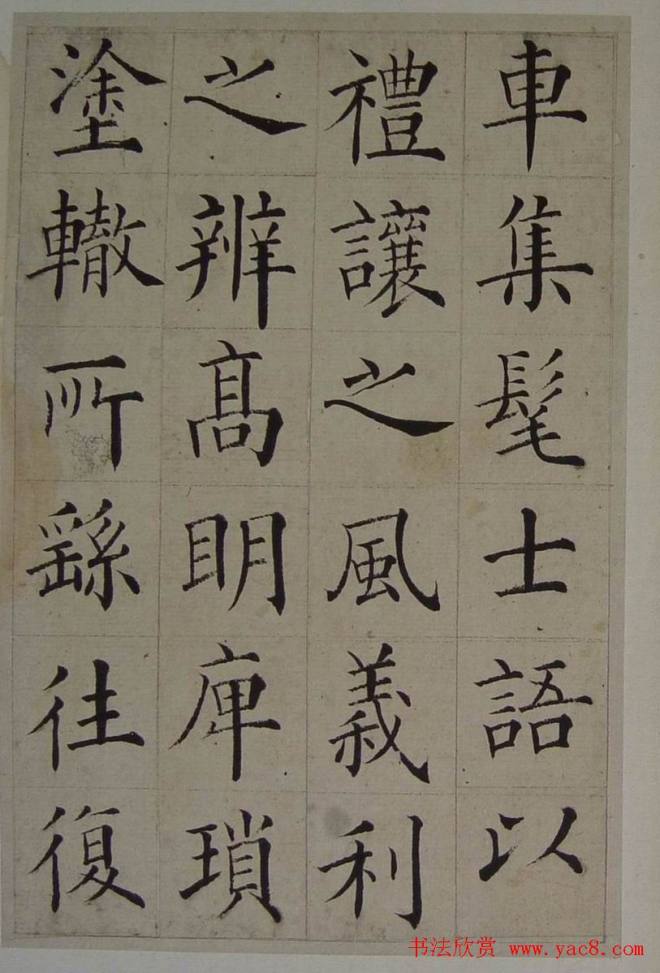 車集髦士語以
禮讓之風義利
之辨高明庳瑣
塗轍所繇往復
书法欣赏 www.yac8.com